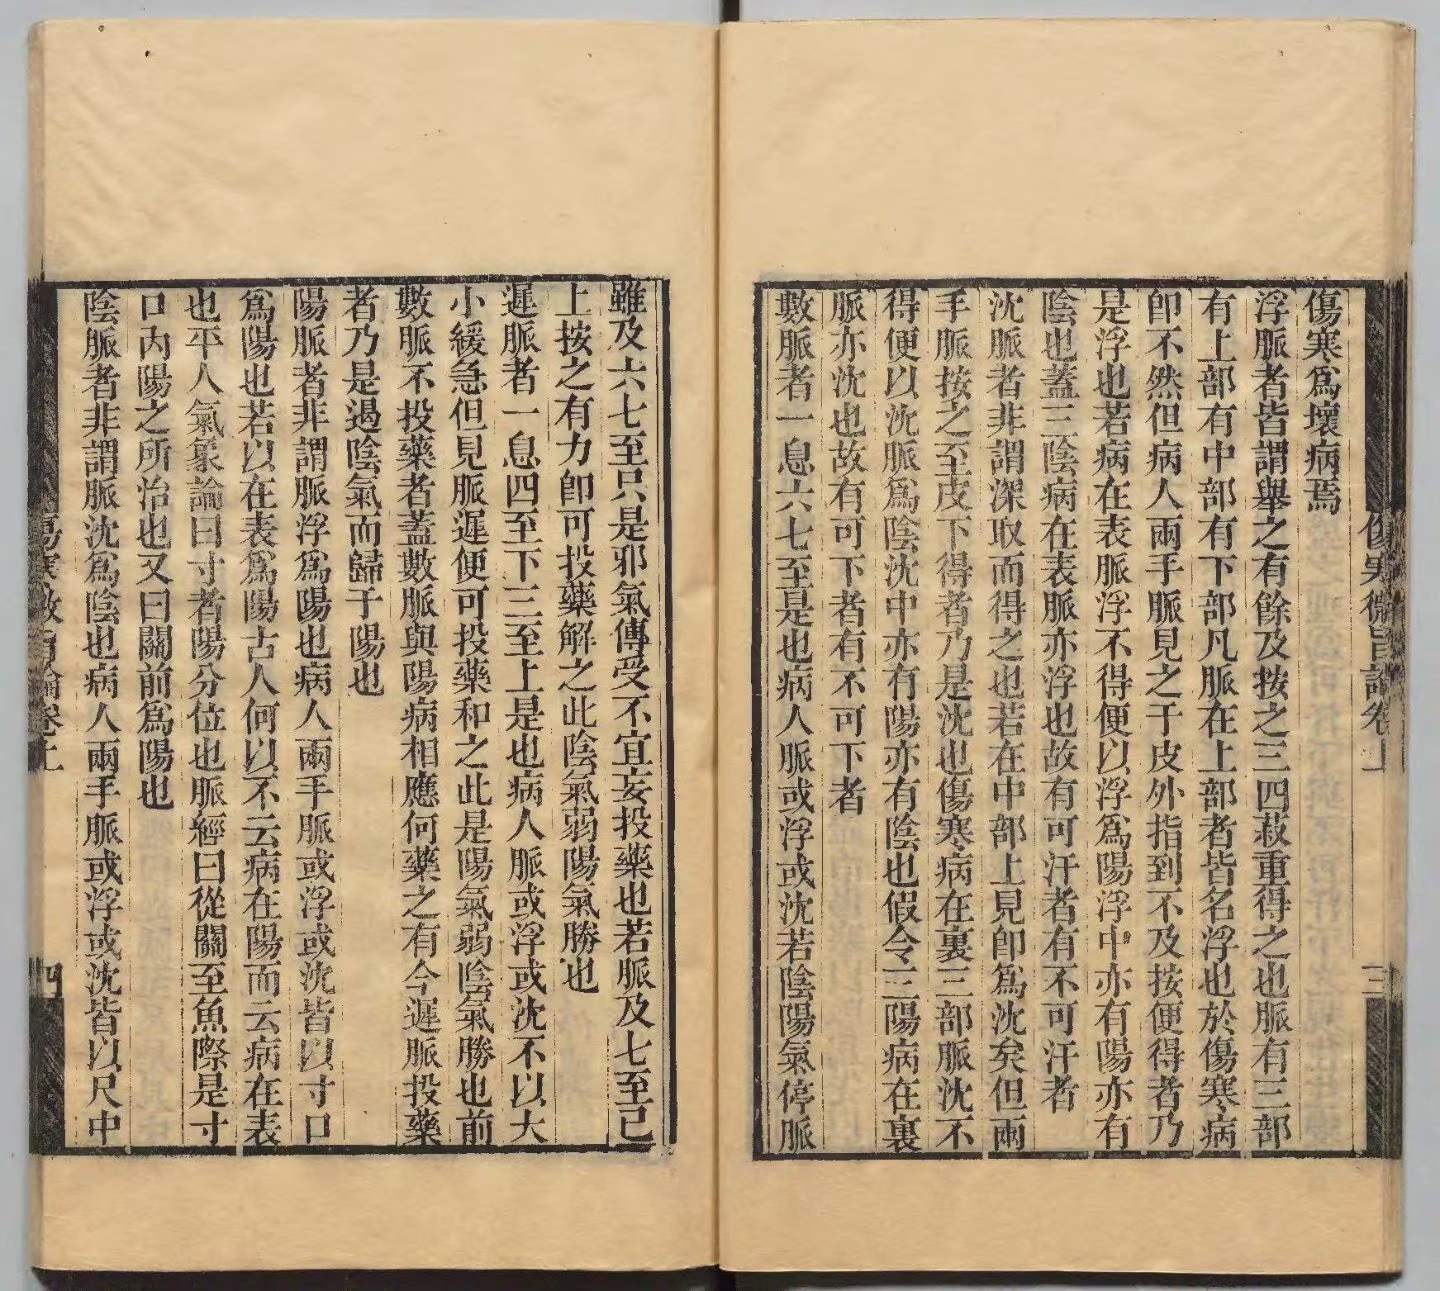 傷寒微旨論卷上
三
傷寒爲壞病焉
浮脈者皆謂舉之有餘及按之三四菽重得之也脈有三部
有上部有中部有下部凡脈在上部者皆名浮也於傷寒病
卽不然但病人兩手脈見之于皮外指到不及按便得者乃
是浮也若病在表脈浮不得便以浮爲陽浮中亦有陽亦有
陰也蓋三陰病在表脈亦浮也故有可汗者有不可汗者
沈脈者非謂深取而得之也若在中部上見卽爲沈矣但兩
手脈按之至皮下得者乃是沈也傷寒病在裏三部脈沈不
得便以沈脈爲陰沈中亦有陽亦有陰也假令三陽病在裏
脈亦沈也故有可下者有不可下者
數脈者一息六七至是也病人脈或浮或沈若陰陽氣停脈
雖及六七至只是邪氣傳受不宜妄投藥也若脈及七至已
上按之有力卽可投藥解之此陰氣弱陽氣勝也
遲脈者一息四至下三至上是也病人脈或浮或沈不以大
小緩急但見脈遲便可投藥和之此是陽氣弱陰氣勝也前
數脈不投藥者蓋數脈與陽病相應何藥之有今遲脈投藥
者乃是遏陰氣而歸于陽也
陽脈者非謂脈浮爲陽也病人兩手脈或浮或沈皆以寸口
爲陽也若以在表爲陽古人何以不云病在陽而云病在表
也平人氣象論曰寸者陽分位也脈經曰從關至魚際是寸
口內陽之所治也又曰關前爲陽也
陰脈者非謂脈沈爲陰也病人兩手脈或浮或沈皆以尺中
傷寒微旨論卷上
四